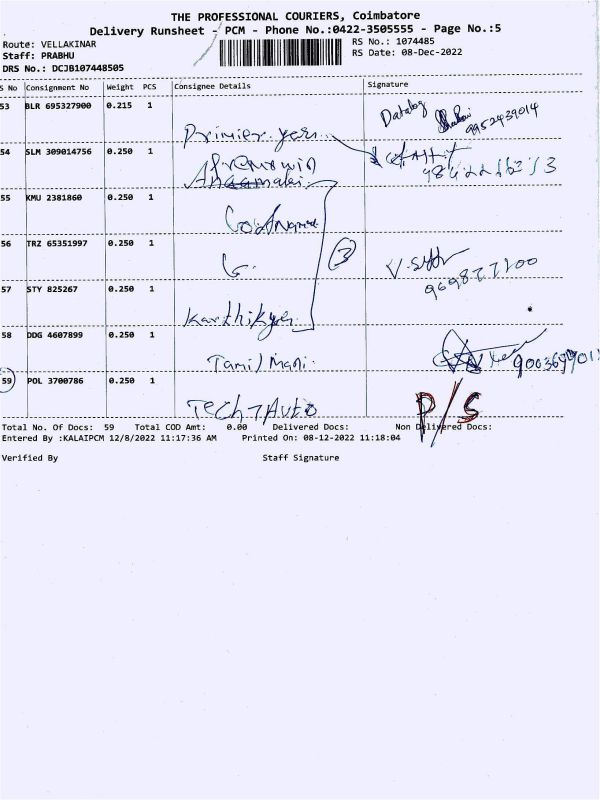 THE PROFESSIONAL COURIERS, Coimbatore
Delivery Runsheet - PCM - Phone No.:0422-3505555 - Page No.:5
Route: VELLAKINAR
RS No.: 1074485
Staff: PRABHU
RS Date: 08-Dec-2022
DRS No.: DCJB107448505
S No Consignment No Weight PCS Consignee Details Signature
53 BLR 695327900 0.215 1
Datalog
9952439014
54 SLM 309014756 0.250 1
55 KMU 2381860 0.250 1
56 TRZ 65351997 0.250 1
3
9698277200
57 STY 825267 0.250 1
Karthikyen
58 DDG 4607899 0.250 1
Tamil Mani.
59 POL 3700786 0.250 1
Tech 7 Auto
P/S
Total No. Of Docs: 59 Total COD Amt: 0.00 Delivered Docs: Non Delivered Docs:
Entered By :KALAIPCM 12/8/2022 11:17:36 AM Printed On: 08-12-2022 11:18:04
Verified By Staff Signature